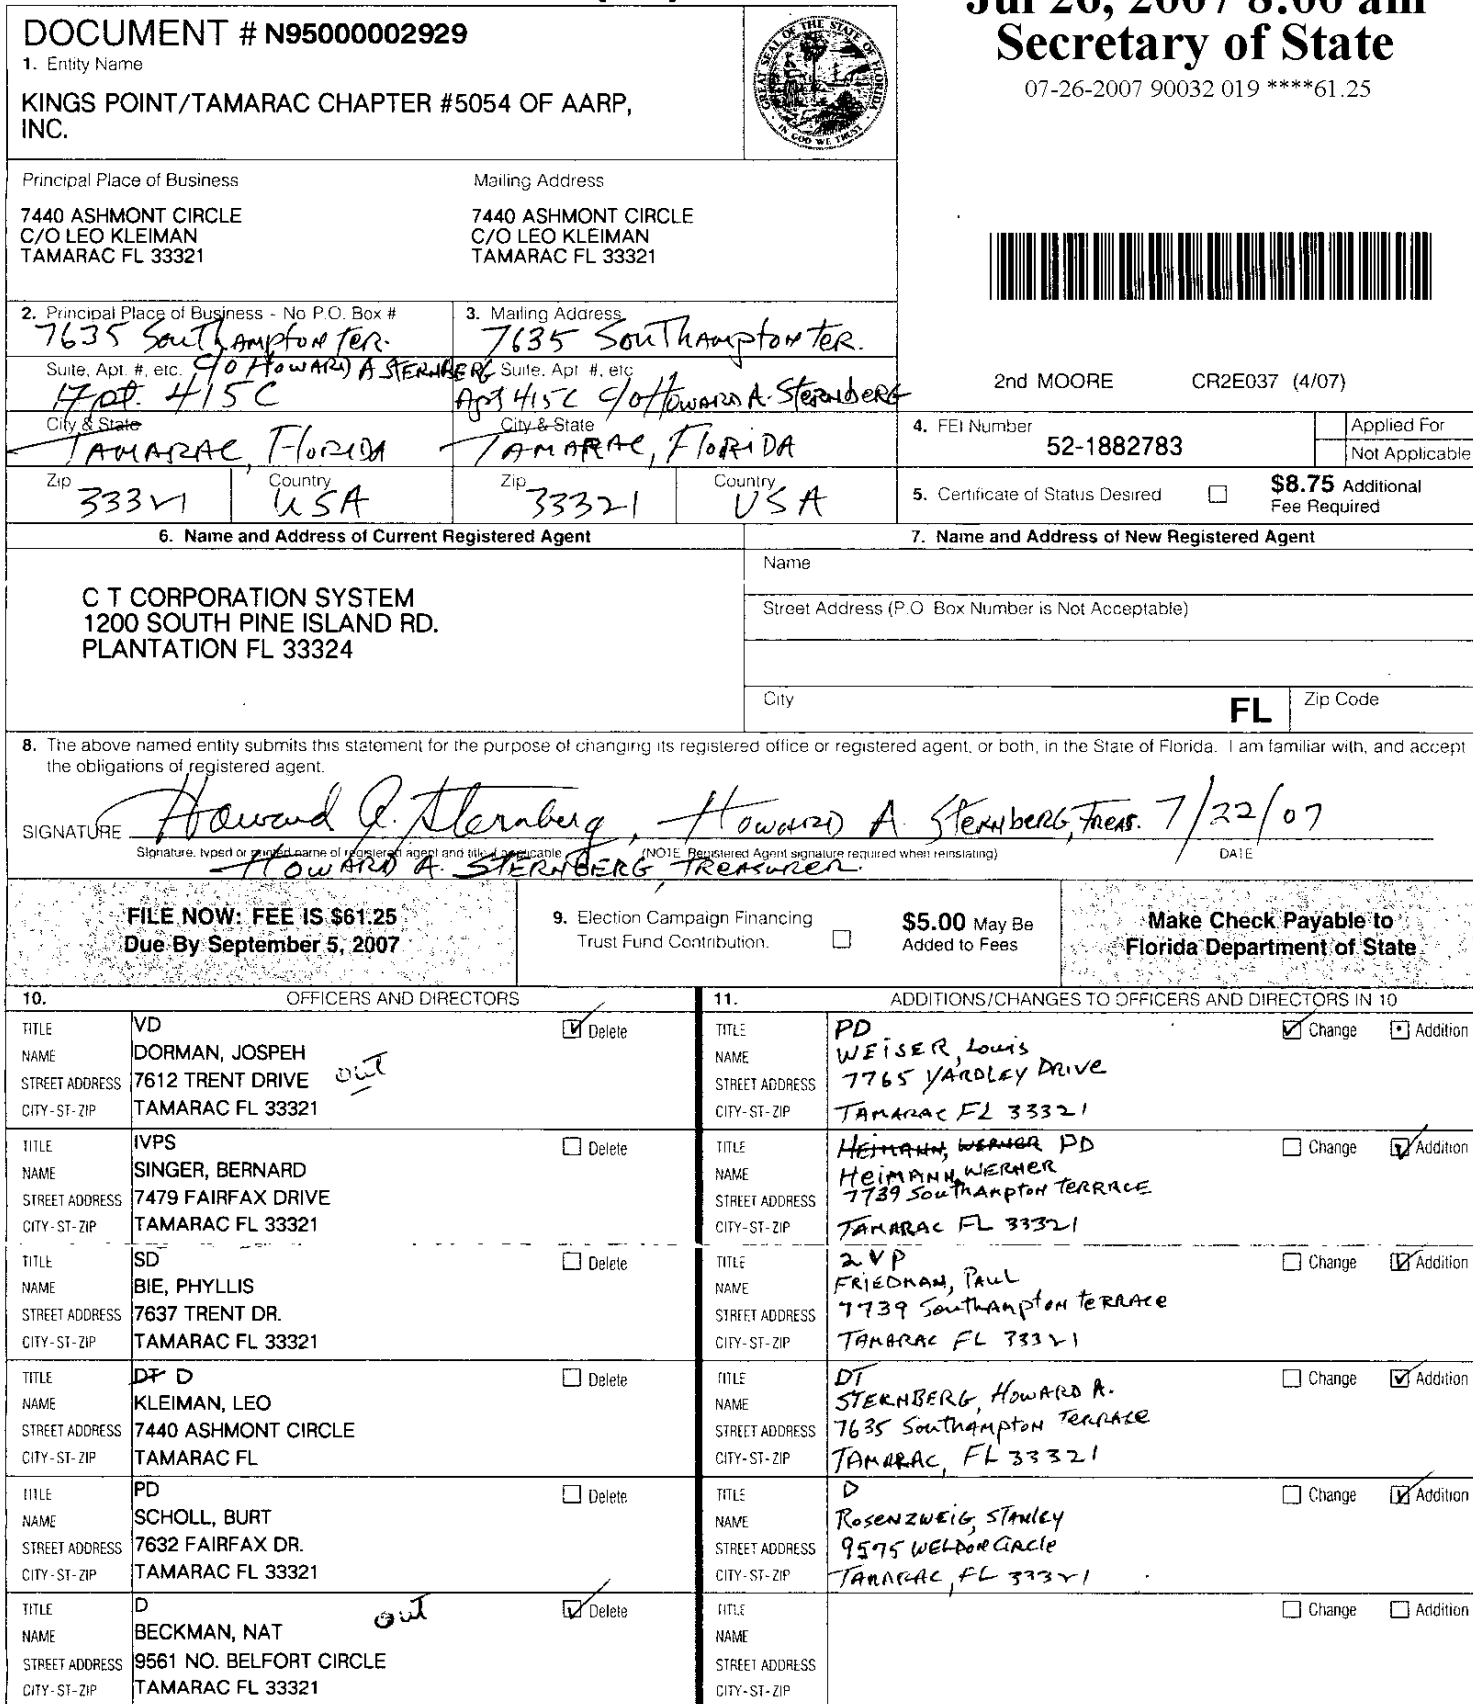 DOCUMENT # N95000002929
1. Entity Name
KINGS POINT/TAMARAC CHAPTER #5054 OF AARP,
INC.
GREAT SEAL OF THE STATE OF FLORIDA
IN GOD WE TRUST
Jul 26, 2007 8:00 am
Secretary of State
07-26-2007 90032 019 ****61.25
Principal Place of Business
7440 ASHMONT CIRCLE
C/O LEO KLEIMAN
TAMARAC FL 33321
Mailing Address
7440 ASHMONT CIRCLE
C/O LEO KLEIMAN
TAMARAC FL 33321
2. Principal Place of Business - No P.O. Box #
7635 Southampton Ter.
Suite, Apt. #, etc. C/O HOWARD A STERNBERG
Apt. 415C
City & State
TAMARAC, Florida
Zip
33321
Country
USA
3. Mailing Address
7635 Southampton Ter.
Suite. Apt #, etc
Apt 415C C/O Howard A. Sternberg
City & State
TAMARAC, FLORIDA
Zip
33321
Country
USA
2nd MOORE CR2E037 (4/07)
4. FEI Number
52-1882783
Applied For
Not Applicable
5. Certificate of Status Desired
$8.75 Additional
Fee Required
6. Name and Address of Current Registered Agent
C T CORPORATION SYSTEM
1200 SOUTH PINE ISLAND RD.
PLANTATION FL 33324
7. Name and Address of New Registered Agent
Name
Street Address (P.O. Box Number is Not Acceptable)
City
FL
Zip Code
8. The above named entity submits this statement for the purpose of changing its registered office or registered agent, or both, in the State of Florida. I am familiar with, and accept
the obligations of registered agent.
SIGNATURE Howard A. Sternberg, Howard A. Sternberg, Treas. 7/22/07
Signature, typed or printed name of registered agent and title if applicable (NOTE Registered Agent signature required when reinstating) DATE
HOWARD A. STERNBERG, TREASURER.
FILE NOW: FEE IS $61.25
Due By September 5, 2007
9. Election Campaign Financing
Trust Fund Contribution.
$5.00 May Be
Added to Fees
Make Check Payable to
Florida Department of State
10. OFFICERS AND DIRECTORS
TITLE VD Delete
NAME DORMAN, JOSPEH
STREET ADDRESS 7612 TRENT DRIVE out
CITY-ST-ZIP TAMARAC FL 33321
TITLE IVPS Delete
NAME SINGER, BERNARD
STREET ADDRESS 7479 FAIRFAX DRIVE
CITY-ST-ZIP TAMARAC FL 33321
TITLE SD Delete
NAME BIE, PHYLLIS
STREET ADDRESS 7637 TRENT DR.
CITY-ST-ZIP TAMARAC FL 33321
TITLE DT D Delete
NAME KLEIMAN, LEO
STREET ADDRESS 7440 ASHMONT CIRCLE
CITY-ST-ZIP TAMARAC FL
TITLE PD Delete
NAME SCHOLL, BURT
STREET ADDRESS 7632 FAIRFAX DR.
CITY-ST-ZIP TAMARAC FL 33321
TITLE D out Delete
NAME BECKMAN, NAT
STREET ADDRESS 9561 NO. BELFORT CIRCLE
CITY-ST-ZIP TAMARAC FL 33321
11. ADDITIONS/CHANGES TO OFFICERS AND DIRECTORS IN 10
TITLE PD Change Addition
NAME WEISER, Louis
STREET ADDRESS 7765 YARDLEY DRIVE
CITY-ST-ZIP TAMARAC FL 33321
TITLE HEIMANN, WERNER PD Change Addition
NAME HEIMANN, WERNER
STREET ADDRESS 7739 Southampton TERRACE
CITY-ST-ZIP TAMARAC FL 33321
TITLE 2 VP Change Addition
NAME FRIEDMAN, PAUL
STREET ADDRESS 7739 Southampton TERRACE
CITY-ST-ZIP TAMARAC FL 33321
TITLE DT Change Addition
NAME STERNBERG, HOWARD A.
STREET ADDRESS 7635 Southampton TERRACE
CITY-ST-ZIP TAMARAC, FL 33321
TITLE D Change Addition
NAME ROSENZWEIG, STANLEY
STREET ADDRESS 9575 WELDON CIRCLE
CITY-ST-ZIP TAMARAC, FL 33321
TITLE Change Addition
NAME
STREET ADDRESS
CITY-ST-ZIP